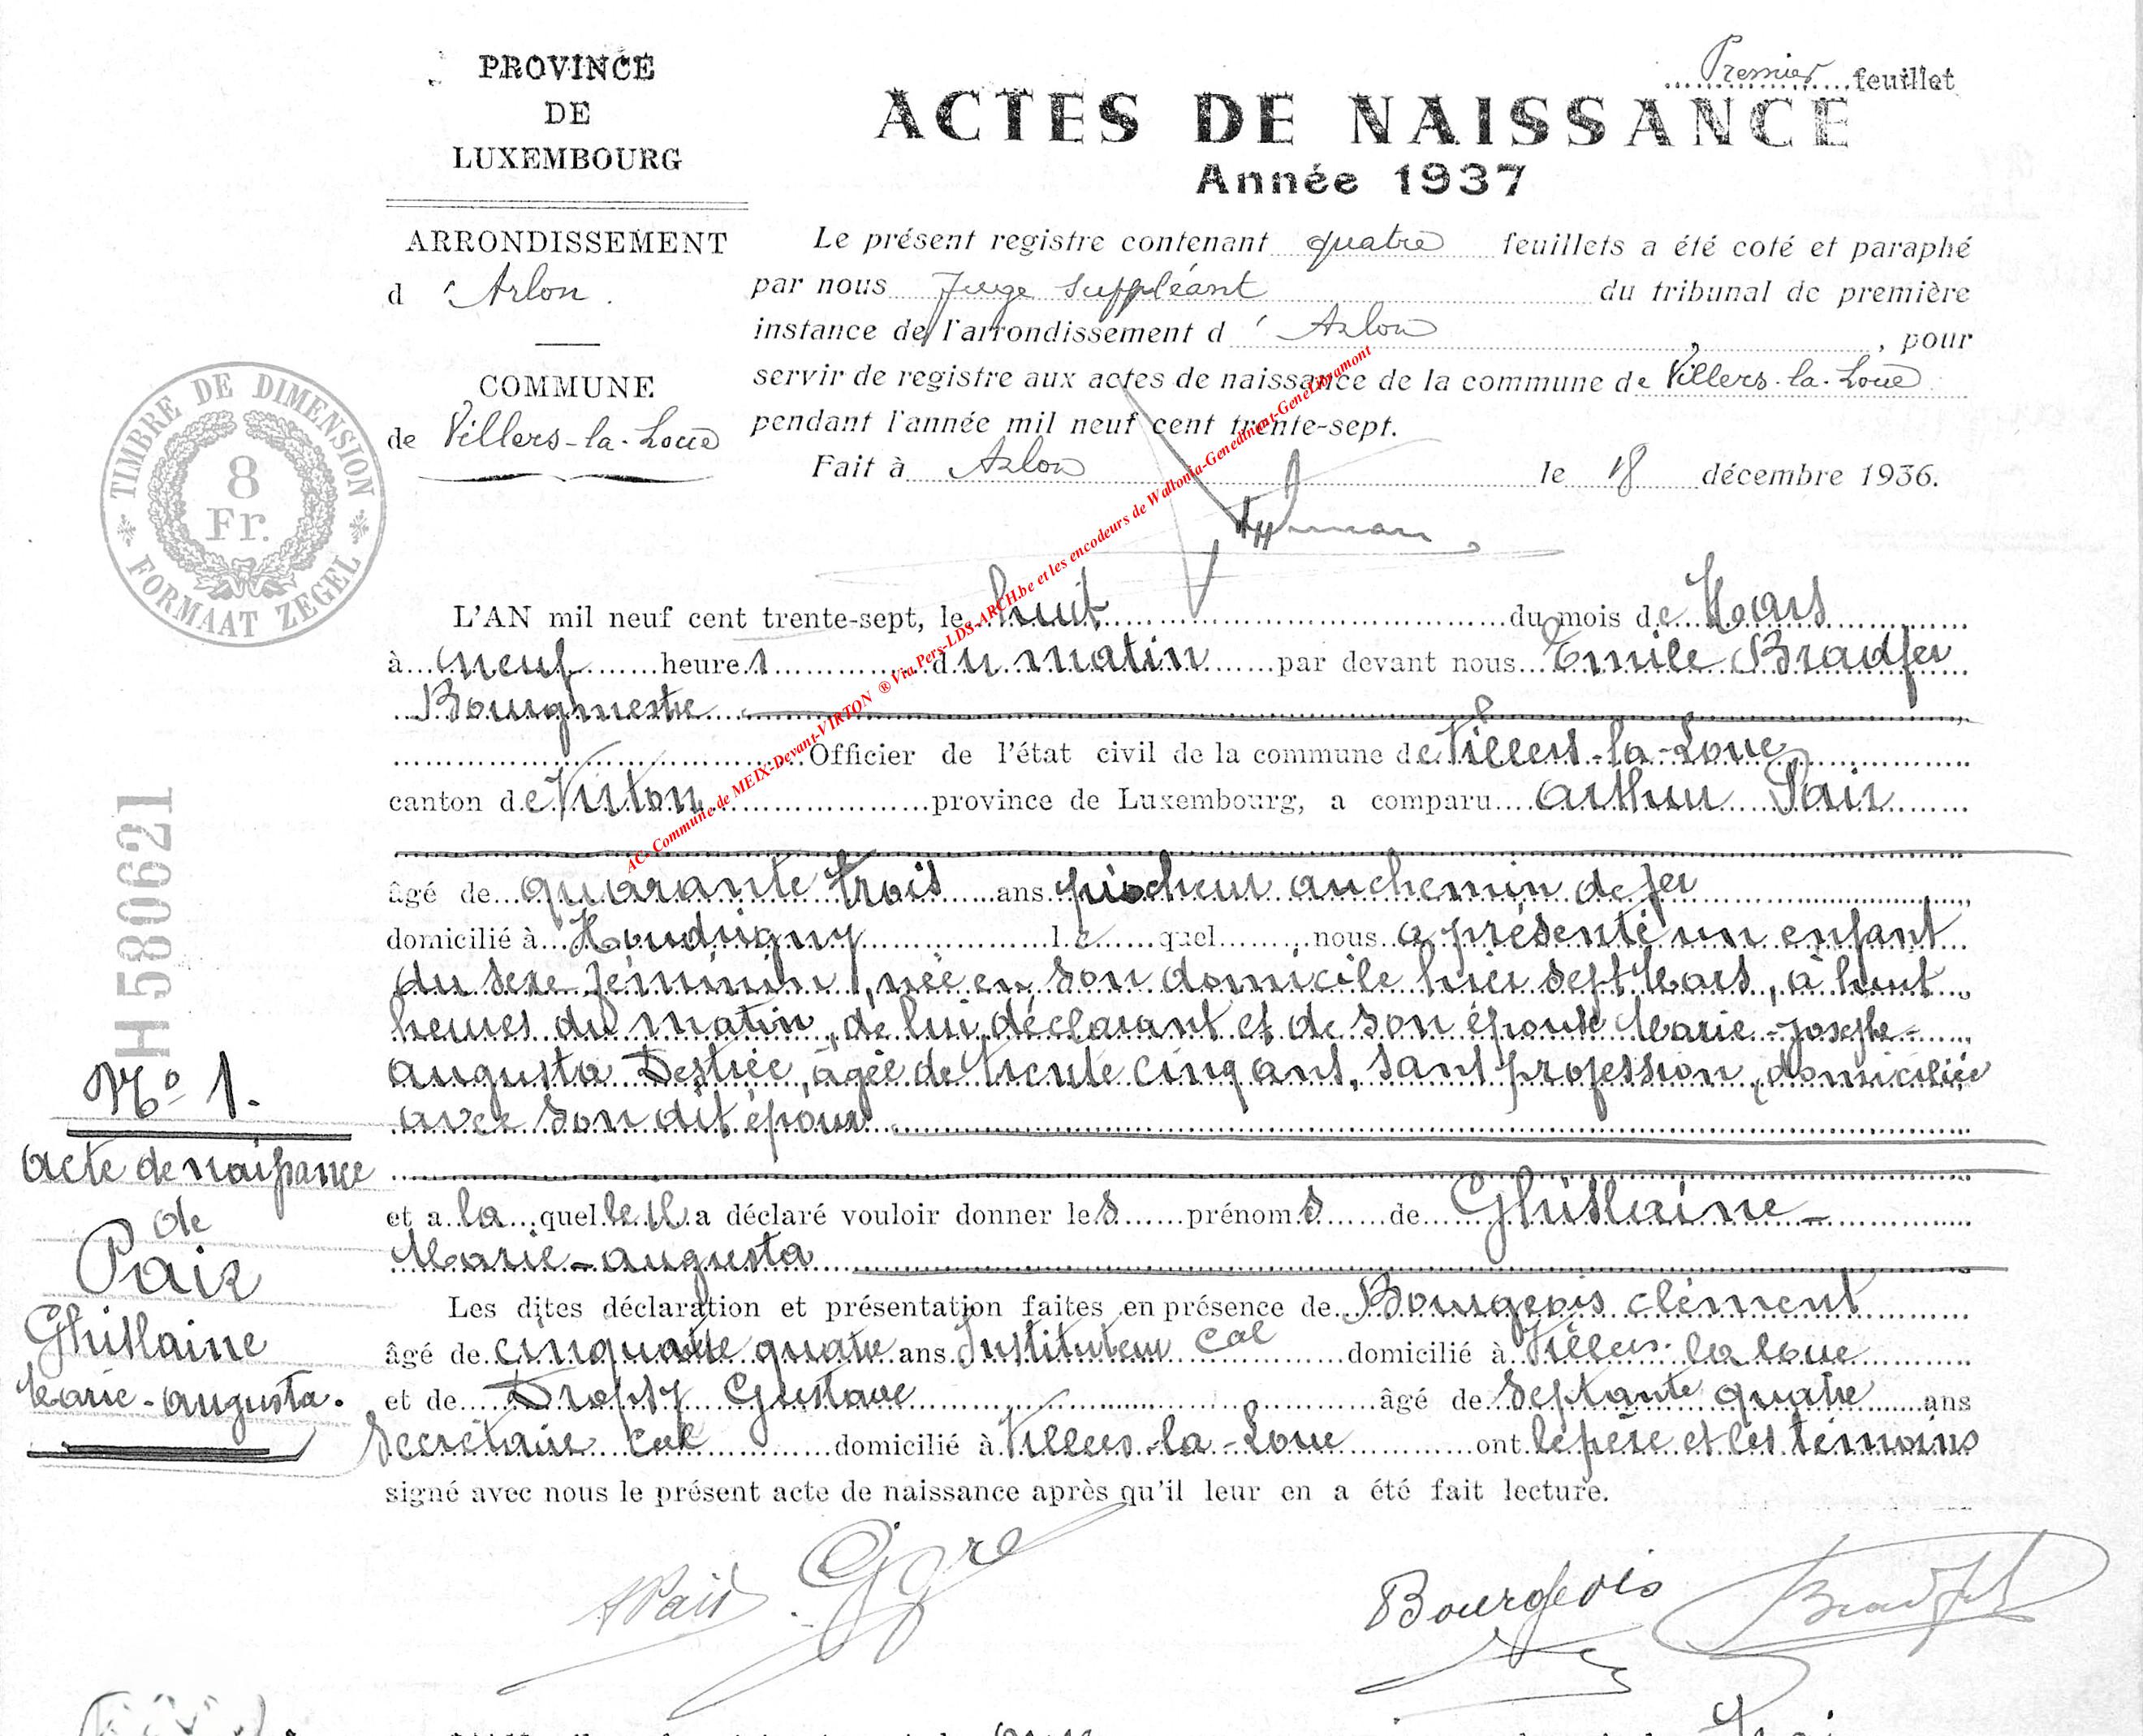 Premier feuillet
PROVINCE
DE
LUXEMBOURG
ACTES DE NAISSANCE
Année 1937
ARRONDISSEMENT
d 'Arlon.
COMMUNE
de Villers-la-Loue
Le présent registre contenant quatre feuillets a été coté et paraphé
par nous Juge suppléant du tribunal de première
instance de l'arrondissement d 'Arlon, pour
servir de registre aux actes de naissance de la commune de Villers-la-Loue
pendant l'année mil neuf cent trente-sept.
Fait à Arlon le 18 décembre 1936.
TIMBRE DE DIMENSION
8
Fr.
FORMAAT ZEGEL
H 580621
AC- Commune de MEIX-Devant-VIRTON ® Via Pers-LDS-ARCH.be et les encodeurs de Wallonia-Genedinant-GeneLibramont
L'AN mil neuf cent trente-sept, le huit du mois de Mars
à neuf heures du matin par devant nous Emile Bradfer
Bourgmestre
Officier de l'état civil de la commune de Villers-la-Loue
canton de Virton province de Luxembourg, a comparu Arthur Pair
âgé de quarante trois ans piocheur au chemin de fer
domicilié à Houdrigny le quel nous a présenté un enfant
du sexe féminin, née en son domicile hier sept Mars, à huit
heures du matin, de lui déclarant et de son épouse Marie-Josephe-
Augusta Destrée, âgée de trente cinq ans, sans profession, domiciliée
avec son dit époux
et a la quelle il a déclaré vouloir donner les prénoms de Ghislaine-
Marie-Augusta
Les dites déclaration et présentation faites en présence de Bourgeois Clément
âgé de cinquante quatre ans Instituteur cal domicilié à Villers-la-Loue
et de Dropsy Gustave âgé de septante quatre ans
Secrétaire cal domicilié à Villers-la-Loue ont le père et les témoins
signé avec nous le présent acte de naissance après qu'il leur en a été fait lecture.
No 1.
Acte de naissance
de
Pair
Ghislaine
Marie-Augusta.
A Pair
Bourgeois
Bradfer